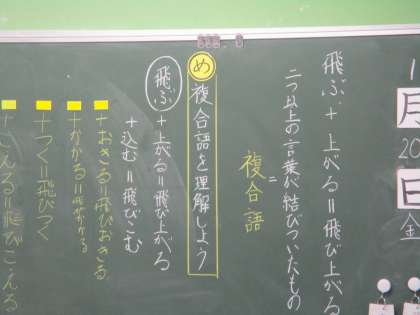 1
月
20
日
金
飛ぶ + 上がる = 飛び上がる
二つ以上の言葉が結びついたもの
=
複合語
め 複合語を理解しよう
飛ぶ + 上がる = 飛び上がる
+ 込む = 飛びこむ
+ おきる = 飛びおきる
+ かかる = 飛びかかる
+ つく = 飛びつく
+ こえる = 飛びこえる